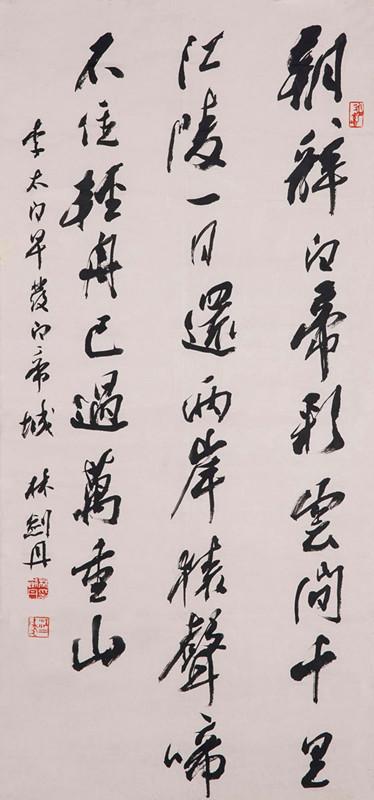 朝辭白帝彩雲間千里
江陵一日還兩岸猿聲啼
不住輕舟已過萬重山
李太白早發白帝城 林劍丹